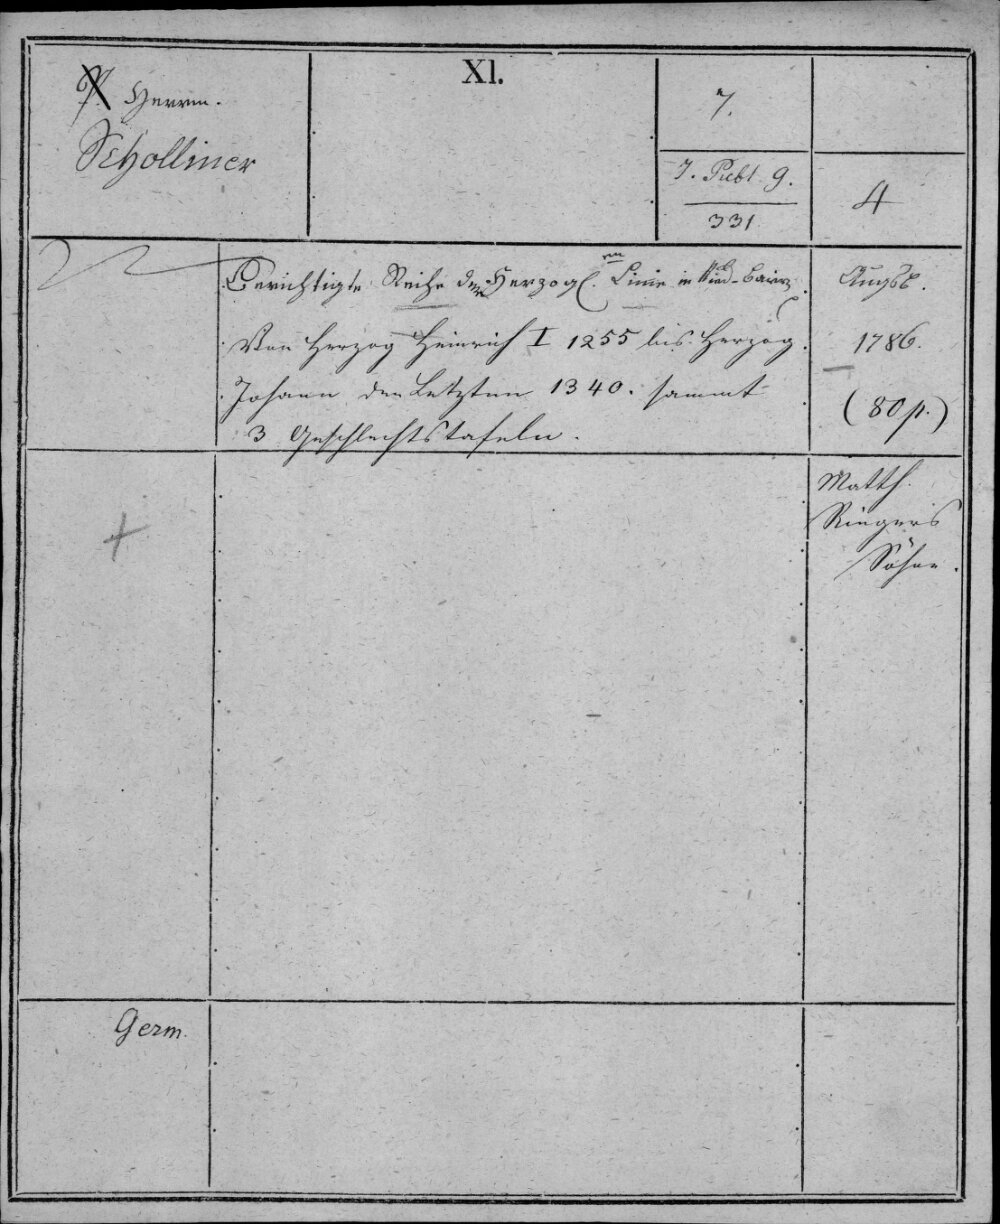 P. Herrm.
Scholliner
XI.
7.
7. Publ. g.
331
4
Berichtigte Reihe der Herzogl. Linie in Nied-Baiern.
Von Herzog Heinrich I 1255 bis Herzog
Johann den Letzten 1340. sammt
3 Geschlechtstafeln.
Augsb.
1786.
(80 p.)
Matth.
Riegers
Söhne.
+
Germ.